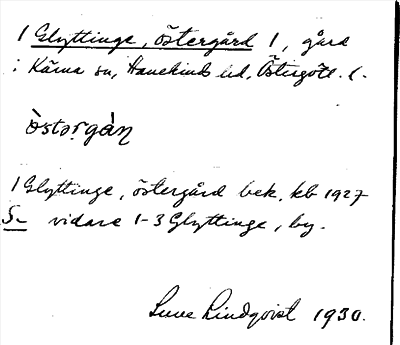 1 Glyttinge, östergård 1, gård
i Kärna sn, Hanekinds hd, Östergötl. l.
östərgàṇ
1 Glyttinge, östergård bek. kb 1927
Se vidare 1-3 Glyttinge, by.
Sune Lindqvist 1930.